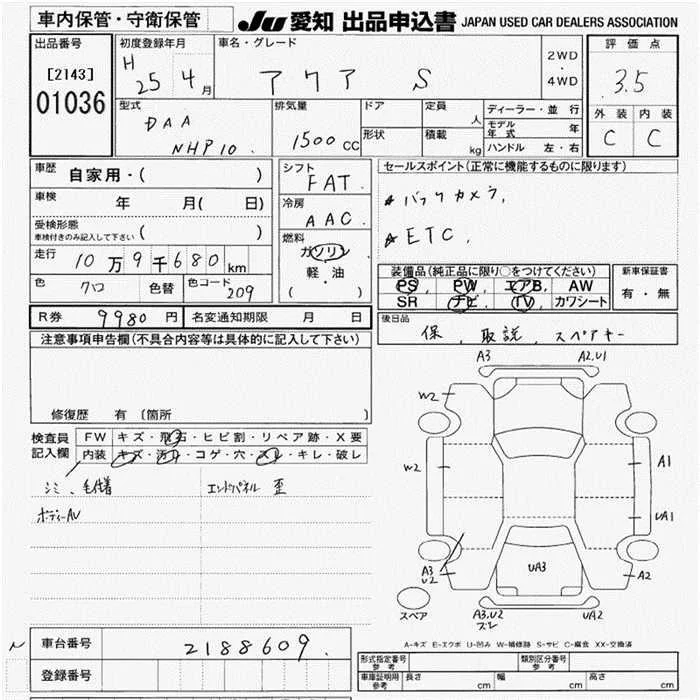 車内保管・守衛保管
JU 愛知 出品申込書 JAPAN USED CAR DEALERS ASSOCIATION
出品番号
[2143]
01036
初度登録年月
H 25 4月
車名・グレード
アクア S
2WD
・
4WD
評価点
3.5
外装 内装
C C
型式
DAA
NHP10.
排気量
1500 CC
ドア
形状
定員 人
積載 kg
ディーラー・並行
モデル年式 年
ハンドル 左・右
車歴 自家用・( )
車検 年 月( 日)
受検形態
車検付きのみ記入して下さい ( )
走行 10万9千680km
色 クロ 色替 色コード 209
シフト
FAT.
冷房
AAC.
燃料
ガソリン
軽・油
( )
セールスポイント(正常に機能するものに限ります)
★バックカメラ,
★ETC,
装備品(純正品に限り○をつけてください)
PS PW エアB AW
SR ナビ TV カワシート
新車保証書
有・無
R券 9980円 名変通知期限 月 日
後日品
保, 取説, スペアキー
注意事項申告欄(不具合内容等は具体的に記入して下さい)
修復歴 有 〔箇所 〕
検査員
記入欄
FW キズ・飛石・ヒビ割・リペア跡・X要
内装 キズ・汚れ・コゲ・穴・スレ・キレ・破レ
シミ、毛付着 エンドパネル 歪
ボディーAU
A3 A2,U1
W2
W2
A1
UA1
A3
U2
UA3
A2
スペア
A3,U2
スレ
UA2
A-キズ E-エクボ U-凹み W-補修跡 S-サビ C-腐食 XX-交換済
車台番号 2188609.
登録番号
形式指定番号 参考 類別区分番号 参考
車庫証明用 参考 長さ cm 幅 cm 高さ cm